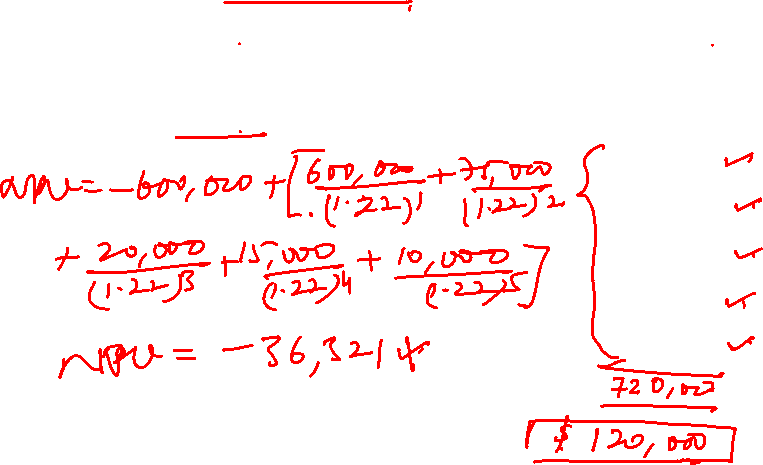 NPV = -600,000 + [600,000/(1.22)1 + 75,000/(1.22)2
+ 20,000/(1.22)3 + 15,000/(1.22)4 + 10,000/(1.22)5]
NPV = -36,321
720,000
$ 120,000